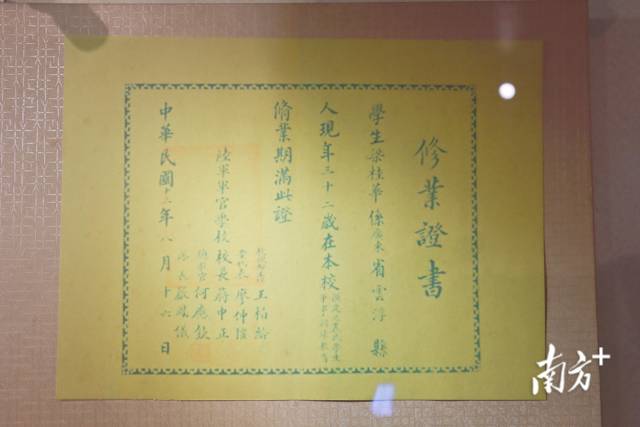 修業證書
學生梁桂華係廣東省雲浮縣
人現年三十二歲在本校
脩業期滿此證
陸軍軍官學校校長蔣中正
廖仲愷
王柏齡
何應欽
嚴鳳儀
中華民國十三年八月十六日
南方+